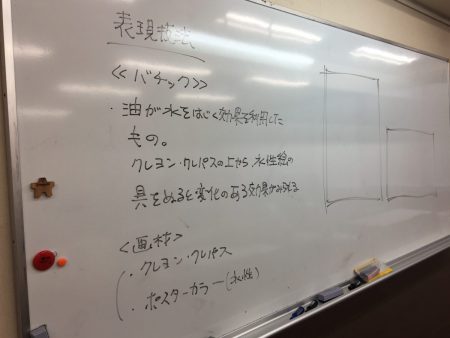 表現技法
≪バチック≫
・油が水をはじく効果を利用した
もの。
クレヨン・クレパスの上から、水性絵の
具をぬると変化のある効果がみられる
<画材>
・クレヨン・クレパス
・ポスターカラー(水性)